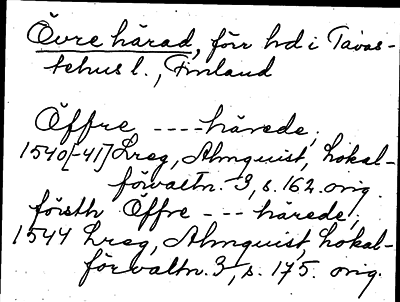 Övre härad, förr hd i Tavas-
tehus l., Finland
Öffre ---- härede,
1540[-41] Lreg, Almquist, Lokal-
förvaltn. 3, s. 162. orig.
försth Öffre --- härede,
1544 Lreg, Almquist, Lokal-
förvaltn. 3, s. 175. orig.